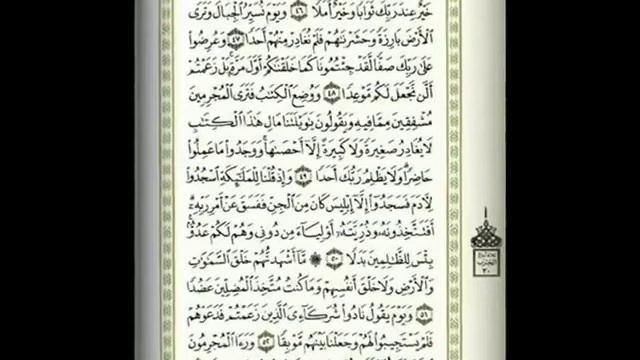 خَيْرٌ عِندَ رَبِّكَ ثَوَابًا وَخَيْرٌ أَمَلًا ٤٦ وَيَوْمَ نُسَيِّرُ ٱلْجِبَالَ وَتَرَى
ٱلْأَرْضَ بَارِزَةً وَحَشَرْنَٰهُمْ فَلَمْ نُغَادِرْ مِنْهُمْ أَحَدًا ٤٧ وَعُرِضُوا۟
عَلَىٰ رَبِّكَ صَفًّا لَّقَدْ جِئْتُمُونَا كَمَا خَلَقْنَٰكُمْ أَوَّلَ مَرَّةٍۭ بَلْ زَعَمْتُمْ
أَلَّن نَّجْعَلَ لَكُم مَّوْعِدًا ٤٨ وَوُضِعَ ٱلْكِتَٰبُ فَتَرَى ٱلْمُجْرِمِينَ
مُشْفِقِينَ مِمَّا فِيهِ وَيَقُولُونَ يَٰوَيْلَتَنَا مَالِ هَٰذَا ٱلْكِتَٰبِ
لَا يُغَادِرُ صَغِيرَةً وَلَا كَبِيرَةً إِلَّآ أَحْصَىٰهَا وَوَجَدُوا۟ مَا عَمِلُوا۟
حَاضِرًا وَلَا يَظْلِمُ رَبُّكَ أَحَدًا ٤٩ وَإِذْ قُلْنَا لِلْمَلَٰٓئِكَةِ ٱسْجُدُوا۟
لِـَٔادَمَ فَسَجَدُوٓا۟ إِلَّآ إِبْلِيسَ كَانَ مِنَ ٱلْجِنِّ فَفَسَقَ عَنْ أَمْرِ رَبِّهِۦٓ
أَفَتَتَّخِذُونَهُۥ وَذُرِّيَّتَهُۥٓ أَوْلِيَآءَ مِن دُونِى وَهُمْ لَكُمْ عَدُوٌّۢ
بِئْسَ لِلظَّٰلِمِينَ بَدَلًا ٥٠ ۞ مَّآ أَشْهَدتُّهُمْ خَلْقَ ٱلسَّمَٰوَٰتِ
وَٱلْأَرْضِ وَلَا خَلْقَ أَنفُسِهِمْ وَمَا كُنتُ مُتَّخِذَ ٱلْمُضِلِّينَ عَضُدًا
٥١ وَيَوْمَ يَقُولُ نَادُوا۟ شُرَكَآءِىَ ٱلَّذِينَ زَعَمْتُمْ فَدَعَوْهُمْ
فَلَمْ يَسْتَجِيبُوا۟ لَهُمْ وَجَعَلْنَا بَيْنَهُم مَّوْبِقًا ٥٢ وَرَءَا ٱلْمُجْرِمُونَ
الحزب
٣٠